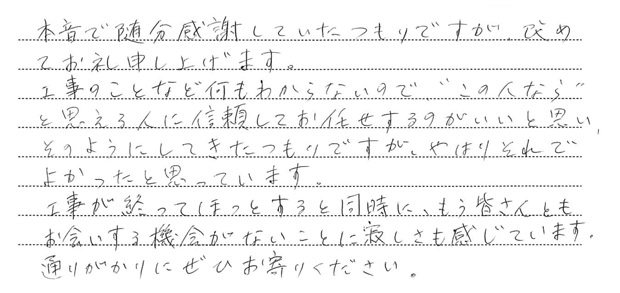 本音で随分感謝していたつもりですが、改め
てお礼申し上げます。
工事のことなど何もわからないので、“この人なら”
と思える人に信頼してお任せするのがいいと思い、
そのようにしてきたつもりですが、やはりそれで
よかったと思っています。
工事が終ってほっとすると同時に、もう皆さんとも
お会いする機会がないことに寂しさも感じています。
通りがかりにぜひお寄りください。